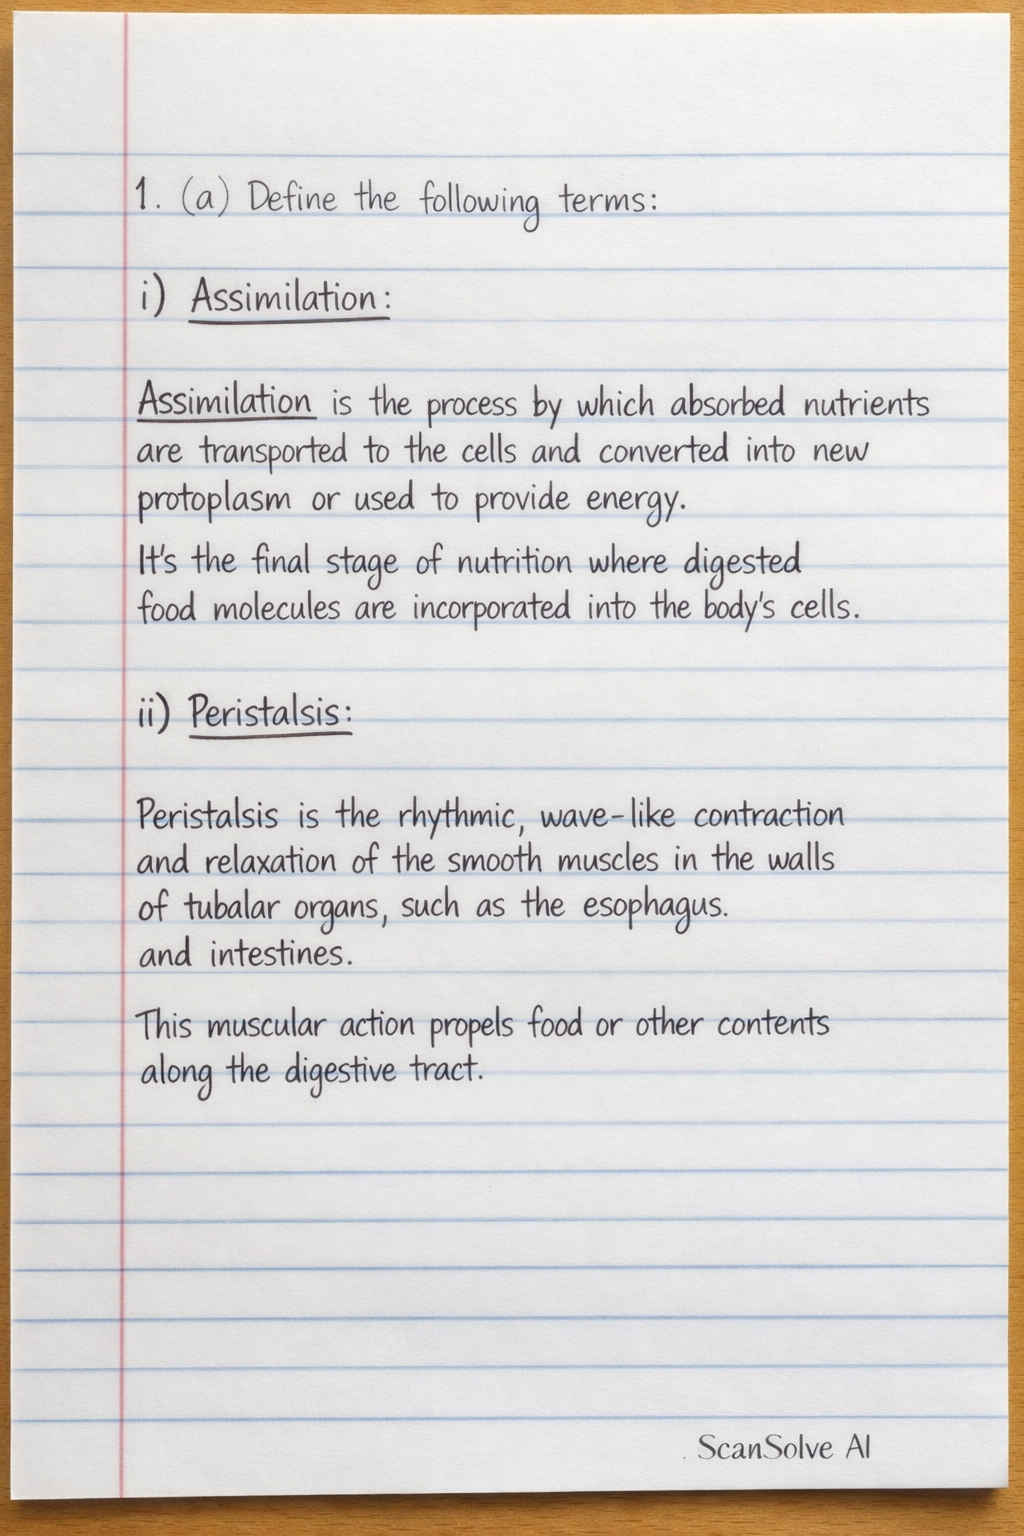 1. (a) Define the following terms:
i) Assimilation:
Assimilation is the process by which absorbed nutrients
are transported to the cells and converted into new
protoplasm or used to provide energy.
It's the final stage of nutrition where digested
food molecules are incorporated into the body's cells.
ii) Peristalsis:
Peristalsis is the rhythmic, wave-like contraction
and relaxation of the smooth muscles in the walls
of tubalar organs, such as the esophagus.
and intestines.
This muscular action propels food or other contents
along the digestive tract.
ScanSolve AI